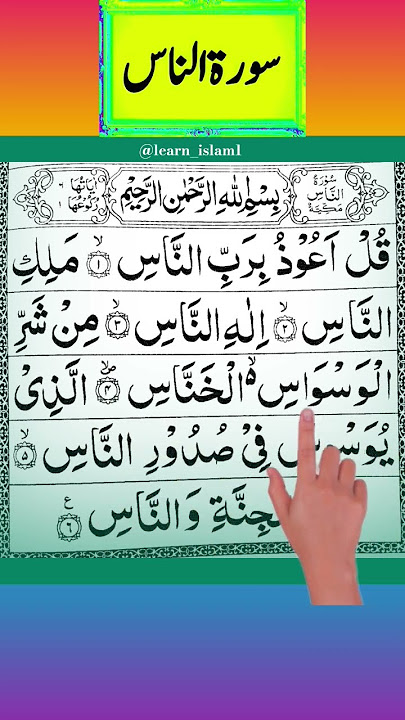 سورة الناس
@learn_islam1
اٰيَاتُهَا ٦
رُكُوْعُهَا ١
بِسْمِ اللّٰهِ الرَّحْمٰنِ الرَّحِيْمِ
سُوْرَةُ
النَّاسِ
مَكِّيَّةٌ
قُلْ اَعُوْذُ بِرَبِّ النَّاسِ ۙ﴿١﴾ مَلِكِ
النَّاسِ ۙ﴿٢﴾ اِلٰهِ النَّاسِ ۙ﴿٣﴾ مِنْ شَرِّ
الْوَسْوَاسِ ۙ۬ الْخَنَّاسِ ۪ۙ﴿٤﴾ الَّذِىْ
يُوَسْوِسُ فِىْ صُدُوْرِ النَّاسِ ۙ﴿٥﴾
وَالنَّاسِ ﴿٦﴾ ع